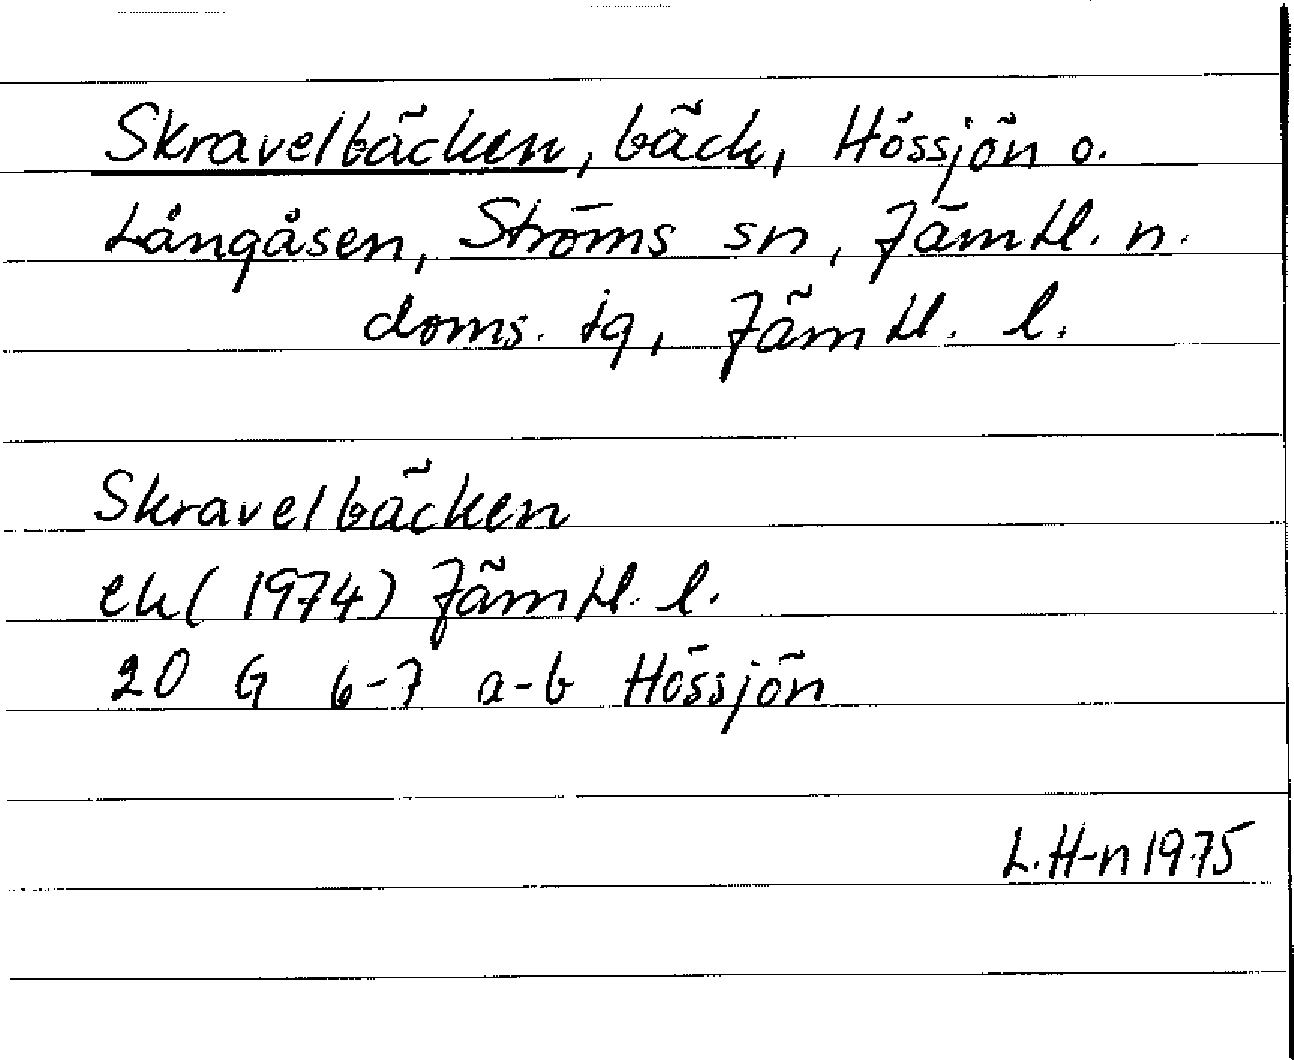 Skravelbäcken, bäck, Hössjön o.
Långåsen, Ströms sn, Jämtl. n.
doms. tg, Jämtl. l.
Skravelbäcken
ek (1974) Jämtl. l.
20 G 6-7 a-b Hössjön
L.H-n 1975